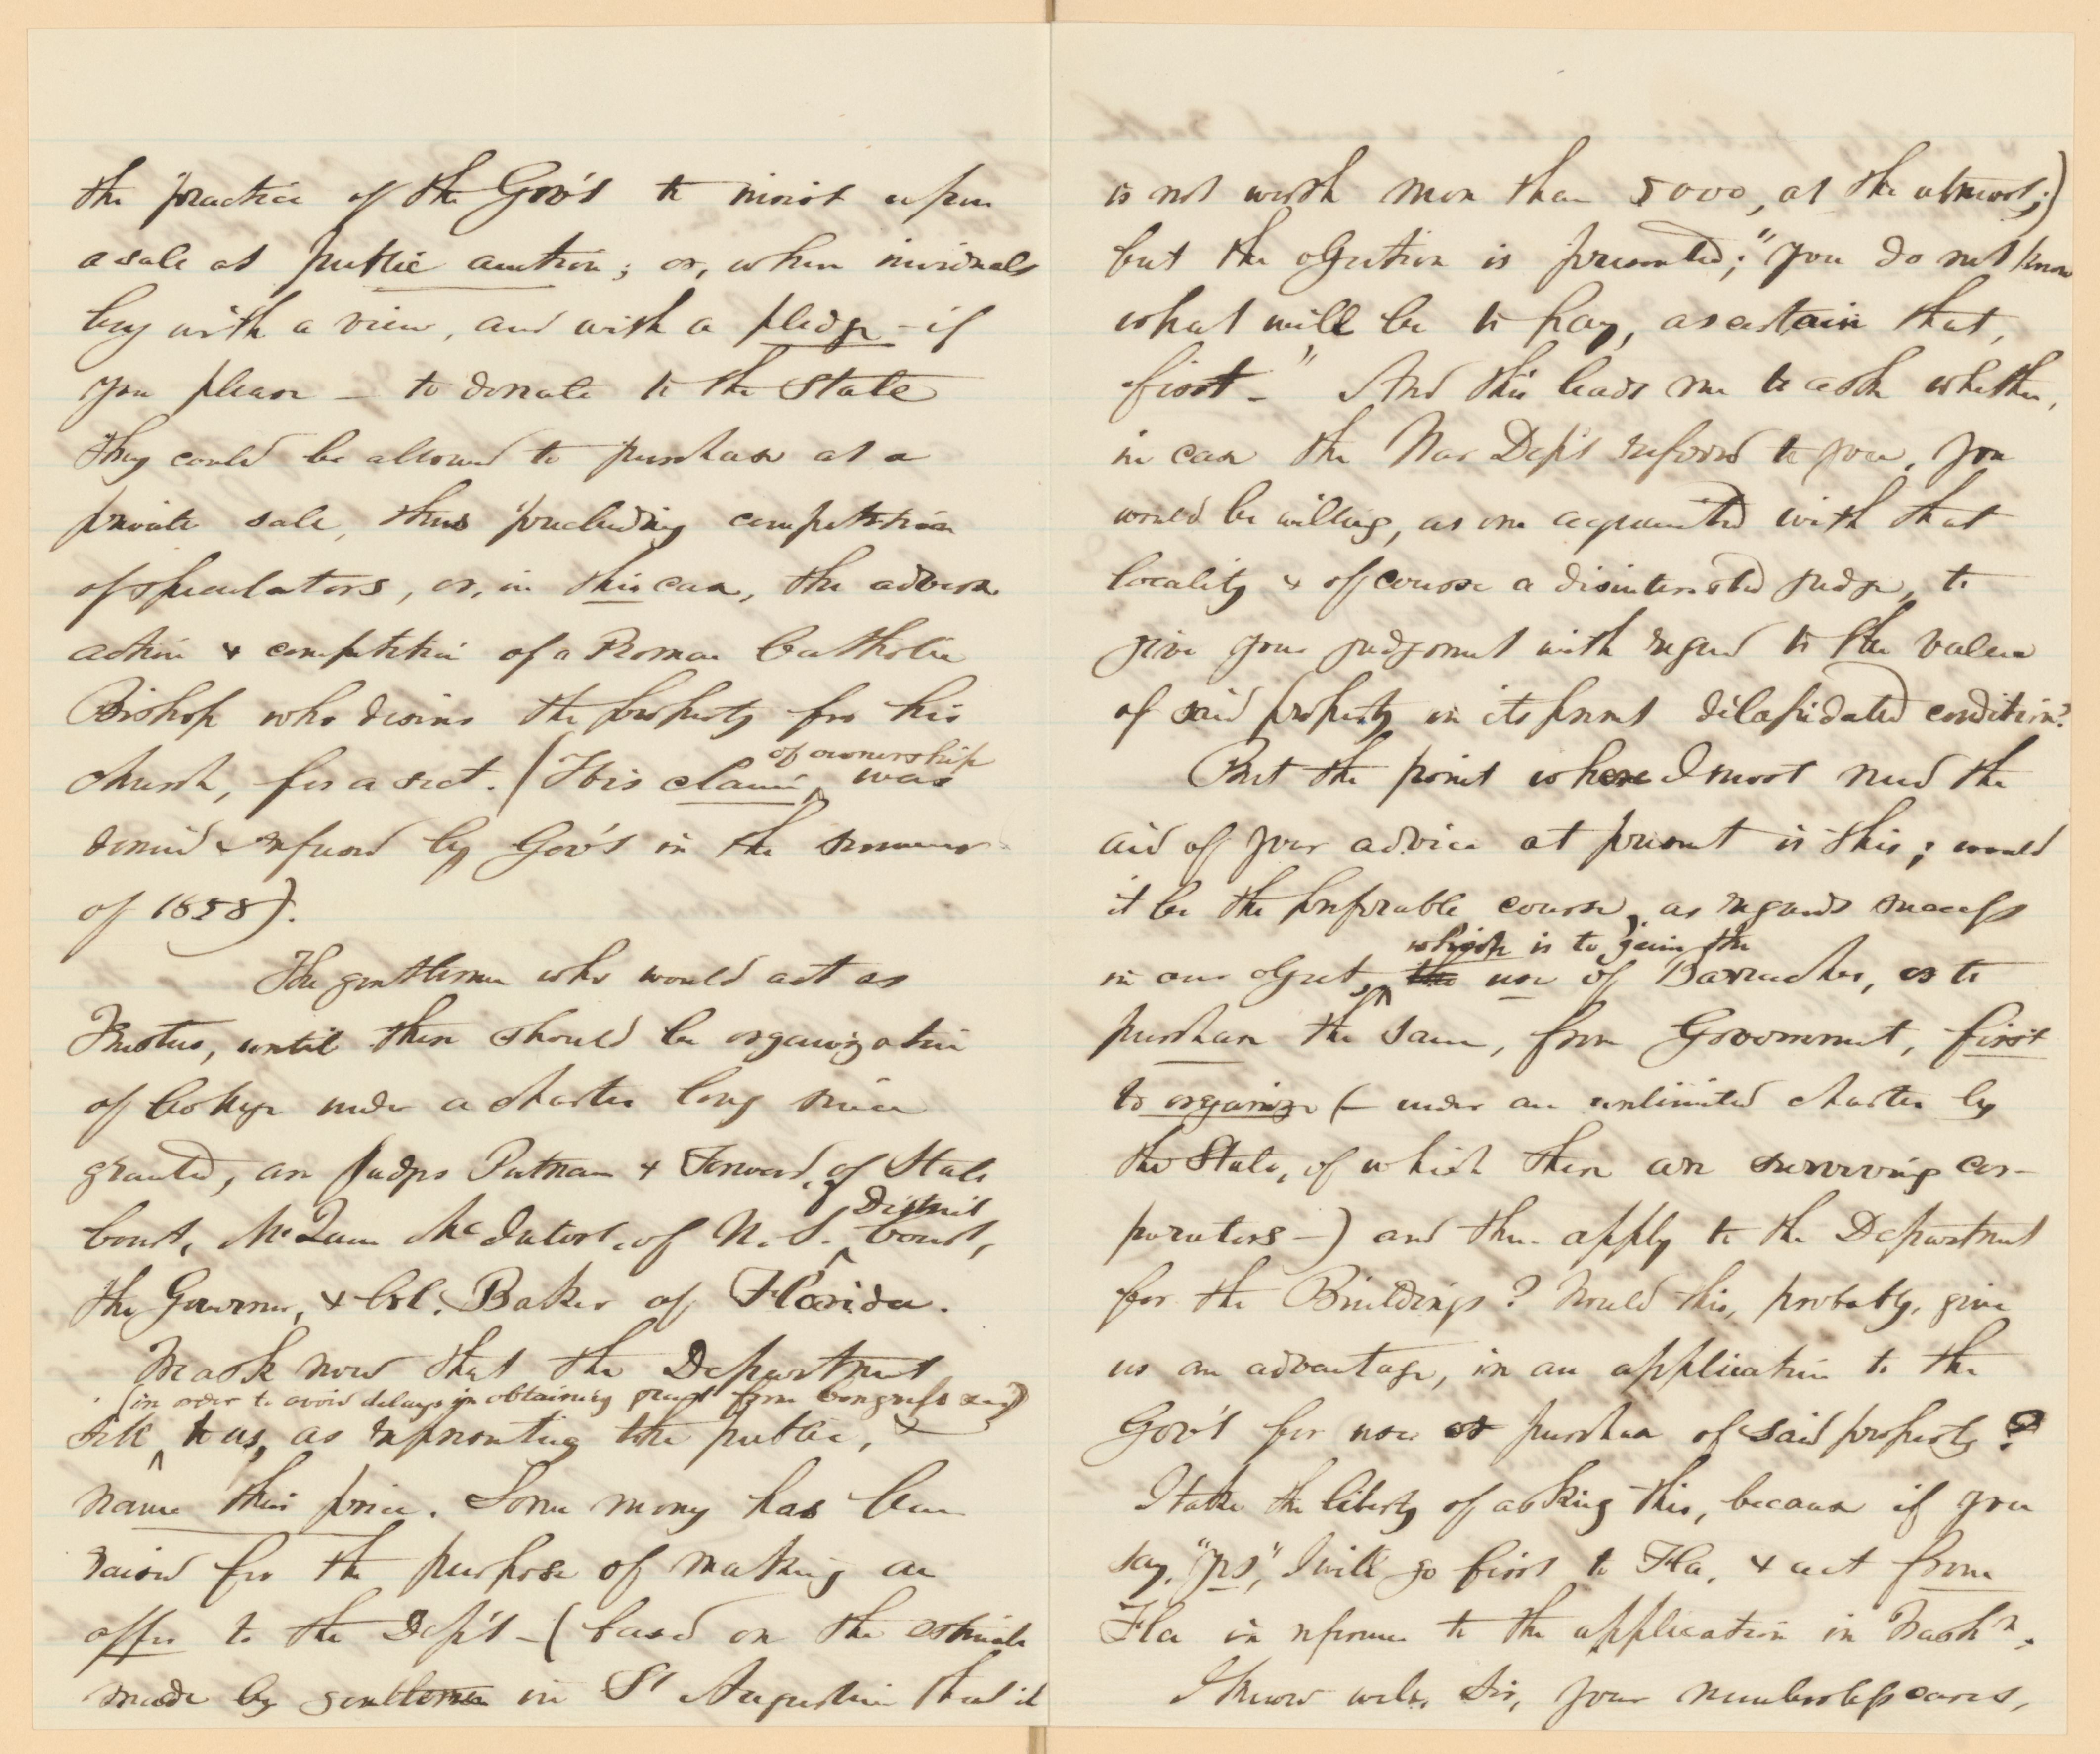 the practice of the Gov't to insist upon
a sale at public auction; or, when inividuals
buy with a view, and with a pledge - if
you please - to donate to the State
they could be allowed to purchase at a
private sale, thus precluding competition
of speculators, or, in this case, the adverse
action & competition of a Roman Catholic
Bishop who desires the property for his
church, for a sect. (This claim
of ownership
was
denied & refused by Gov't in the summer
of 1858).
The gentlemen who would act as
Trustees, until there should be organization
of College under a charter long since
granted, are Judges Putnam & Forward, of State
Court, McQueen McIntosh, of U. S.
District
Court,
the Governor, & Col. Baker of Florida.
We ask now that the Department
(in order to avoid delays in obtaining grant from Congress &c)
sell to us, as representing the public, &
name their price. Some money has been
raised for the purpose of making an
offer to the Dep't - (based on the estimate
made by gentlemen in St Augustine that it
is not worth more than 5000, at the utmost;)
but the objection is presented; "you do not know
what will be to pay, ascertain that,
first -" And this leads me to ask whether,
in case the War Dep't referred to you, you
would be willing, as one acquainted with that
locality & of course a disinterested judge, to
give your judgment with regard to the value
of said property in its present dilapidated condition?
But the point where I most need the
aid of your advice at present is this; would
it be the preferable course, as regards success
in our object,
which is to gain the
the use of Barracks, or to
purchase the same, from Government, first
to organize (- under an unlimited charter by
the State, of which there are surviving cor-
porators -) and then apply to the Department
for the Buildings? Would this, probably, give
us an advantage, in an application to the
Gov't for use or purchase of said property?
I take the liberty of asking this, because if you
say, "yes", I will go first to Fla, & act from
Fla in reference to the application in Washn.
I know well, Sir, your numberless cares,